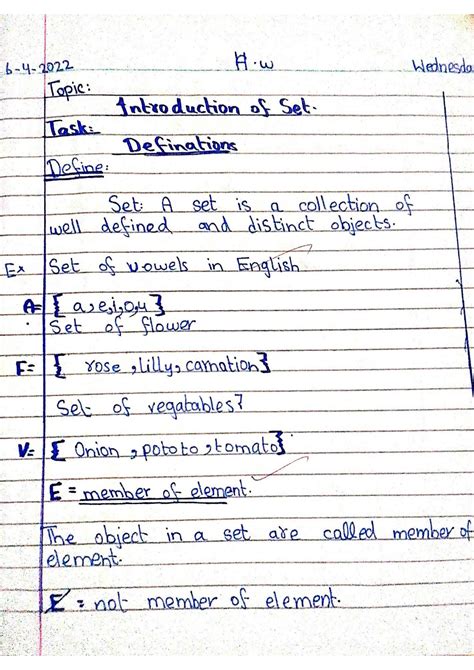 6-4-2022 H.w Wednesda
Topic:
Introduction of Set.
Task:
Definations
Define:
Set: A set is a collection of
well defined and distinct objects.
Ex Set of vowels in English
A= { a,e,i,o,u }
Set of flower
F= { rose , lilly, carnation}
Set of vegatables?
V= { Onion , pototo , tomato}
E = member of element.
The object in a set are called member of
element.
E̸ = not member of element.